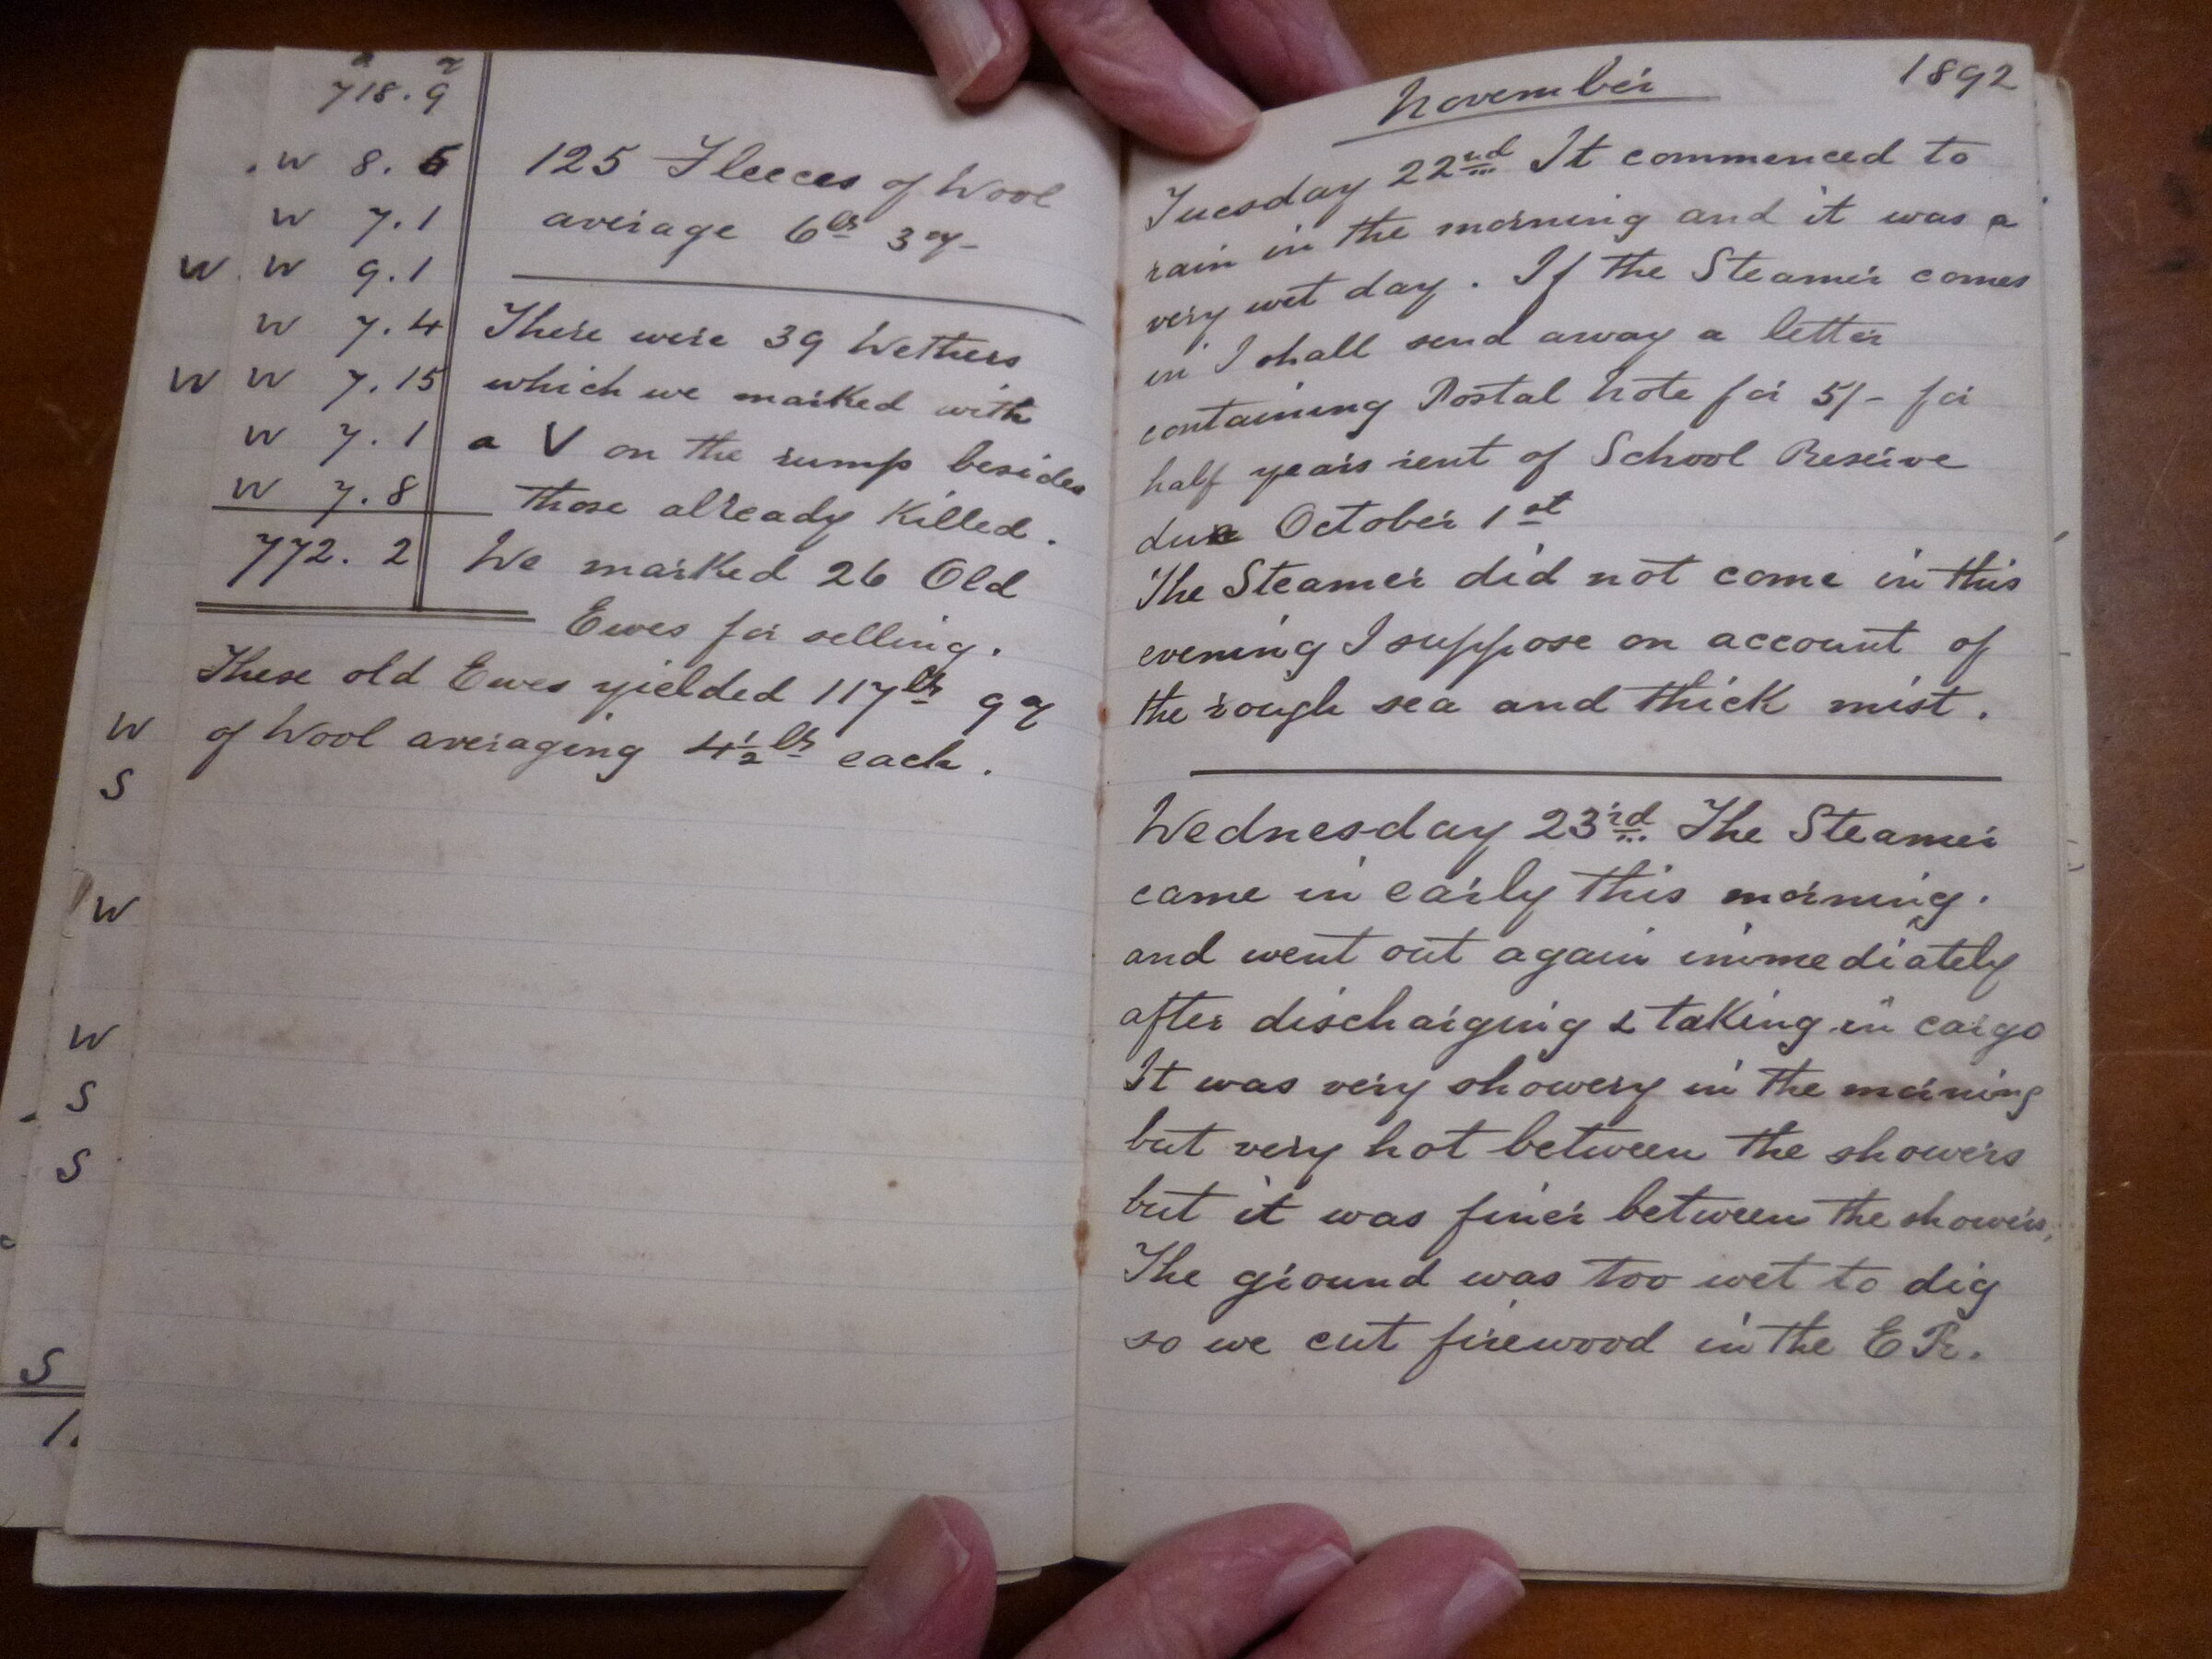 718. 9
W 8. 5
W 7. 1
W W 9. 1
W 7. 4
W W 7. 15
W 7. 1
W 7. 8
772. 2
125 Fleeces of Wool
average 6lbs 3oz
There were 39 Wethers
which we marked with
a V on the rump besides
those already Killed.
We marked 26 Old
Ewes for selling.
These old Ewes yielded 117lbs 9oz
of Wool averaging 4½lbs each.
W
S
W
W
S
S
S
1.
November 1892
Tuesday 22nd It commenced to
rain in the morning and it was a
very wet day. If the Steamer comes
in I shall send away a letter
containing Postal Note for 5/- for
half years rent of School Reserve
due October 1st
The Steamer did not come in this
evening I suppose on account of
the rough sea and thick mist.
Wednesday 23rd The Steamer
came in early this morning.
and went out again immediately
after discharging & taking in cargo
It was very showery in the morning
but very hot between the showers
but it was finer between the showers,
The ground was too wet to dig
so we cut firewood in the